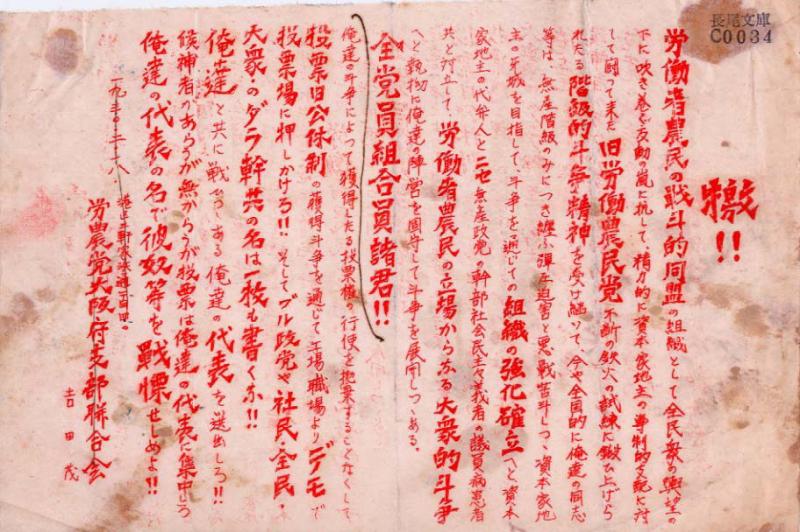 長尾文庫
C0034
檄!!
労働者農民の戦斗的同盟の組織として全民衆の輿望の
下に吹き巻く反動の嵐に抗して、精力的に資本家地主の専制的支配に対
して闘って来た旧労働農民党不断の鉄火の試練に鍛ひ上げら
れたる階級的斗争精神を受け継いで、今や全国的に俺達の同志
等は、無産階級のみにつき纏ふ弾圧迫害と悪戦苦斗しつゝ資本家地
主の牙城を目指して、斗争を通じての組織の強化確立へと資本
家地主の代弁人とニセ無産政党の幹部社会民主主義者の議員病患者
共と対立て、労働者農民の立場からする大衆的斗争
へと執拗に俺達の陣営を固守して斗争を展開しつゝある。
全党員組合員諸君!!
俺達の斗争によって獲得したる投票権の行使を抛棄することなくして
投票日公休制の獲得斗争を通じて工場職場よりデモで
投票場に押しかけろ!!そしてブル政党や社民、全民、
大衆のダラ幹共の名は一枚も書くな!!
俺達と共に戦ひつゝある俺達の代表を送出しろ!!
候補者のあらうが無からうが投票は俺達の代表に集中しろ
俺達の代表の名で彼奴等を戦慄せしめよ!!
一九三〇・二・一八
労農党大阪府支部聯合会
吉田茂